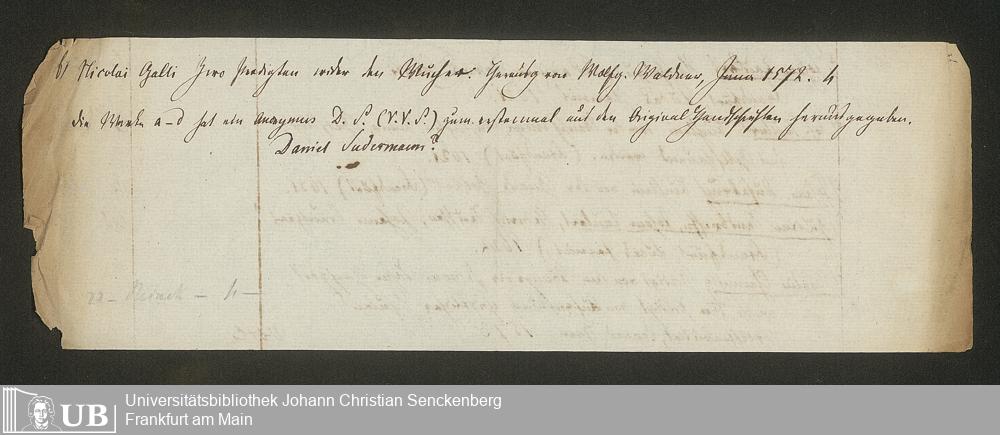 6) Nicolai Galli Zwo Predigten wider den Wucher. Herausg von Wolfg. Waldner, Jena 1572. 4
die Werke a-d hat ein Anonymus D. S. (V. V. S.) zum erstenmal aus den Original Handschriften herausgegeben.
Daniel Sudermann?
22 - Reineck - 4 -
UB
Universitätsbibliothek Johann Christian Senckenberg
Frankfurt am Main